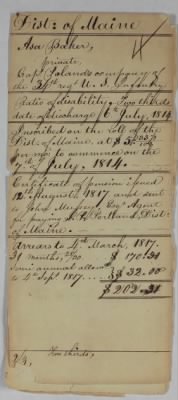 Dist: of Maine
Asa Baker,
private
Capt. Poland's company of
the 34th regt U. S. Infantry
Rate of disability, Two thirds
date of discharge 6th July, 1814.
Inscribed on the Roll of the
Dist: of Maine, at $5.33⅓
per mo. to commence on the
7th of July. 1814.
Certificate of pension issued
12th August 1817 and sent
to John Mussey, Esq. Agent
for paying &c. Portland, Dist:
of Maine.
Arrears to 4th March, 1817.
31 months, $ 170.31
Semi annual allow
to 4th Sept. 1817 $ 32.00
$ 202.31
Two thirds,
2/3,